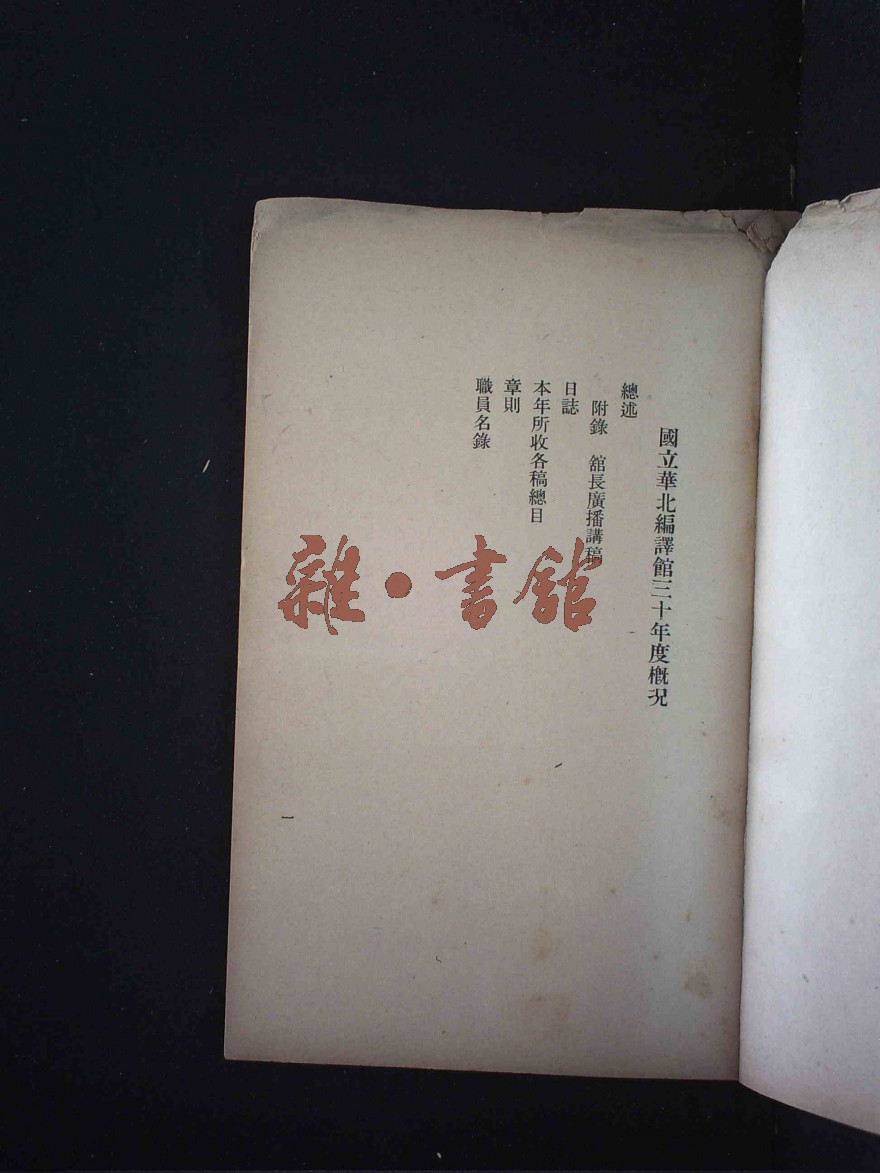 國立華北編譯館三十年度概況
總述
附錄　館長廣播講稿
日誌
本年所收各稿總目
章則
職員名錄
一
雜·書館